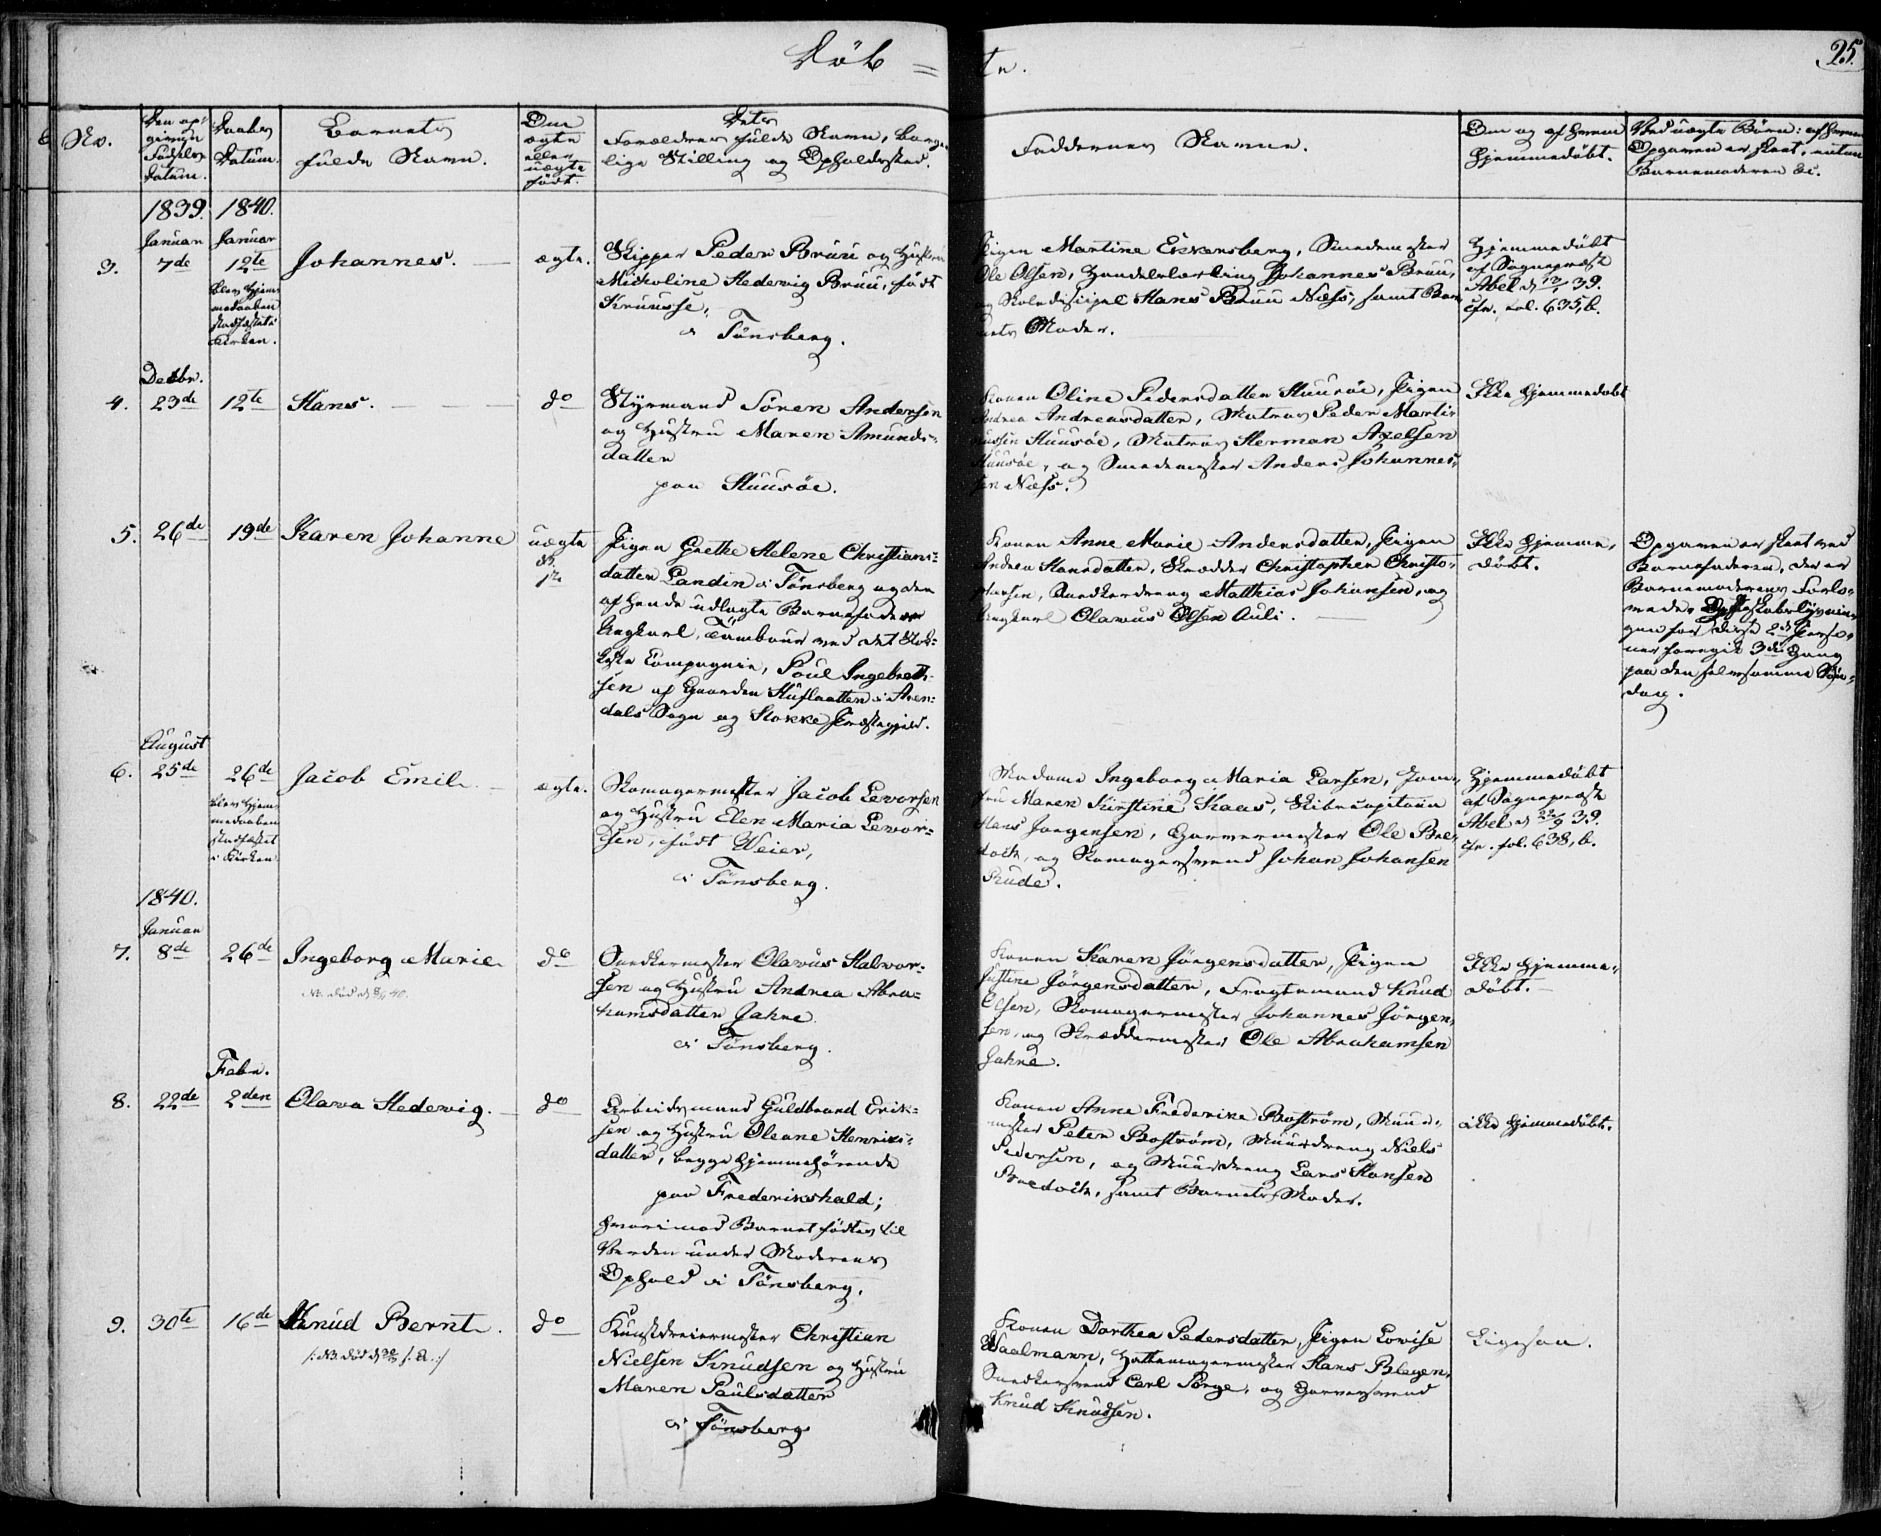 Döb = te.
25.
No.
Den op-
givne
Fødsels-
Datum.
Daabs
Datum.
Barnets
fulde Navn.
Om
ægte
eller
uægte
født.
Dets
Forældres fulde Navn, borger-
lige Stilling og Opholdssted.
Faddernes Navne.
Om og af hvem
hjemmedøbt.
Ved uægte Børn: af hvem
Opgaven er skeet, enten
Barnemoderen &c.
1839. 1840.
3.
Januar
7de
Januar
12te
blev Hjem-
medaaben
stadfæstet i
Kirken.
Johannes.
ægte.
Skipper Peder Bruu og Hustru
Nicoline Hedevig Bruu, født
Knuusse,
i Tönsberg.
Pigen Martine Ekkensberg, Smedemester
Ole Olsen, Handelslærling Johannes Bruu,
og Skolediscipel Hans Bruu Næss, samt Bar-
nets Moder.
Hjemmedøbt
af Sognepræst
Abel d. 13/1 39.
cfr. fol. 635, b.
4.
Decbr.
23de
12te
Hans.
do
Styrmand Sören Andersen
og Hustru Maren Amunds-
datter
paa Huusöe.
Konen Oline Pedersdatter Huusöe, Pigen
Andrea Andreasdatter, Matros Peder Marti-
nussen Huusöe, Matros Herman Axelsen
Huusöe, og Smedemester Anders Johannes-
sen Næss.
Ikke hjemmedøbt
5.
26de
19de
Karen Johanne
uægte
Pigen Grethe Helene Christians-
datter Landin i Tönsberg og den
af hende udlagte Barnefader
Ungkarl, Tambour ved det Stok-
keske Compagnie, Poul Ingebreth-
sen af Gaarden Huslaatten i Aren-
dals Sogn og Stokke Præstegjeld.
Konen Anne Marie Andersdatter, Pigen
Andrea Hansdatter, Skrædder Christopher Christo-
phersen, Snedkerdreng Matthias Johansen, og
Ungkarl Olavus Olsen Auli.
Ikke hjemme-
døbt.
Opgaven er skeet ved
Barnefaderen, der er
Barnemoderens Forlo-
vede. Ægteskabslysnin-
gen for disse 2de Perso-
ner foregik 3die Gang
paa den selvsamme Søn-
dag.
6.
August
25de
26de
blev Hjem-
medaaben
stadfæstet
i Kirken
Jacob Emil.
ægte.
Skomagermester Jacob Levorsen
og Hustru Elen Maria Levor-
sen, født Weier,
i Tönsberg.
Madame Ingeborg Maria Larsen, Jom-
fru Maren Kirstine Kaas, Skibscapitain
Hans Jørgensen, Garvermester Ole Bre-
doch, og Skomagersvend Johan Johansen
Rude.
Hjemmedøbt
af Sognepræst
Abel d. 22/9 39.
cfr. fol. 638, b.
7.
1840.
Januar
8de
26de
Ingeborg Marie
do
Snedkermester Olavus Halvor-
sen og Hustru Andrea Abra-
hamsdatter Jahre
i Tönsberg.
Konen Karen Jörgensdatter, Pigen
Justine Jörgensdatter, Fragtemand Knud
Olsen, Skomagermester Johannes Jörgen-
sen, og Skræddermester Ole Abrahamsen
Jahre.
Ikke hjemme-
døbt.
8.
22de
Febr.
2den
Olava Hedevig.
do
Arbeidsmand Guldbrand Erik-
sen og Hustru Oleane Henriks-
datter, begge hjemmehørende
paa Frederikshald;
hvorimod Barnet fødtes til
Verden under Moderens
Ophold i Tönsberg.
Konen Anne Frederike Boström, Muur-
mester Peter Boström, Muurdreng Niels
Pedersen, og Muurdreng Lars Hansen
Bredoch, samt Barnets Moder.
ikke hjemmedøbt.
9.
30te
16de
Knud Bernt.
do
Kunstdreiermester Christian
Nielsen Knudsen og Hustru
Maren Paulsdatter
i Tönsberg
Konen Dorthea Pedersdatter, Pigen Lovise
Waalmann, Hattemagermester Hans Bleyen,
Snedkersvend Carl Sørge, og Garversvend
Knud Knudsen.
Ligesaa.